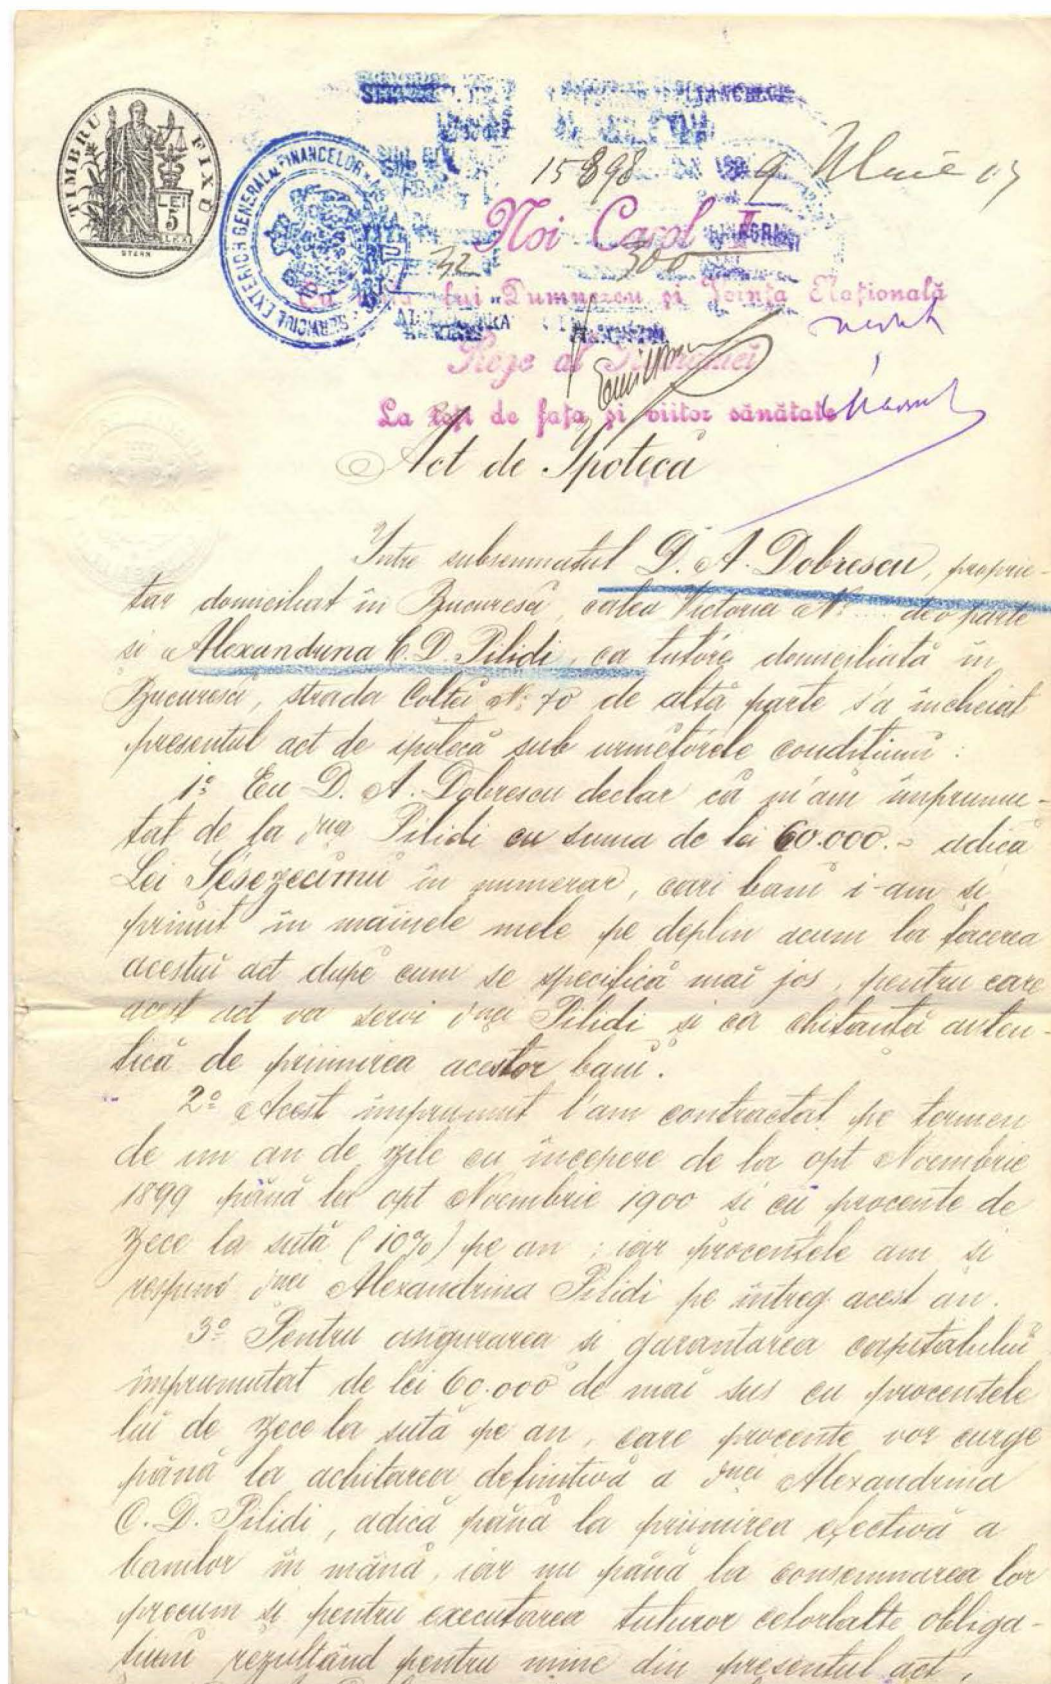 TIMBRU FIX
LEI
5
STERN
SERVICIUL EXTERIOR GENERAL AL FINANCELOR
15898 9
Noi Carol I
32 300
lui Dumnezeu și Voința Națională
Rege al României
La toți de față și viitor sănătate
Act de Ipotecă
Intre subsemnatul D. A. Dobrescu, proprie-
tar domiciliat în Bucuresci, calea Victoria No ... de o parte
si Alexandrina C. D. Pilidi, ca tutóre domiciliată in
Bucuresci, strada Colței No 70 de altă parte s'a incheiat
presentul act de ipotecă sub urmatórele conditiuni:
1o Eu D. A. Dobrescu declar că m'am imprumu-
tat de la Dna Pilidi cu suma de lei 60.000.- adica
Lei Séseḑecimii in numerar, cari bani i-am si
primit in mâinele mele pe deplin acum la facerea
acestui act dupe cum se specifică mai jos, pentru care
acest act va servi Dnei Pilidi si ca chitanță auten-
tică de primirea acestor bani.
2o Acest imprumut l'am contractat pe termen
de un an de zile cu incepere de la opt Noembrie
1899 până la opt Noembrie 1900 si cu procente de
zece la sută (10%) pe an; iar procentele am si
respuns Dnei Alexandrina Pilidi pe intreg acest an.
3o Pentru asigurarea si garantarea capitalului
imprumutat de lei 60.000 de mai sus cu procentele
lui de zece la sută pe an, care procente vor curge
până la achitarea definitivă a Dnei Alexandrina
C. D. Pilidi, adică până la primirea efectivă a
banilor in mână, iar nu până la consemnarea lor
precum si pentru executarea tuturor celorlalte obliga-
tiuni rezultând pentru mine din presentul act,